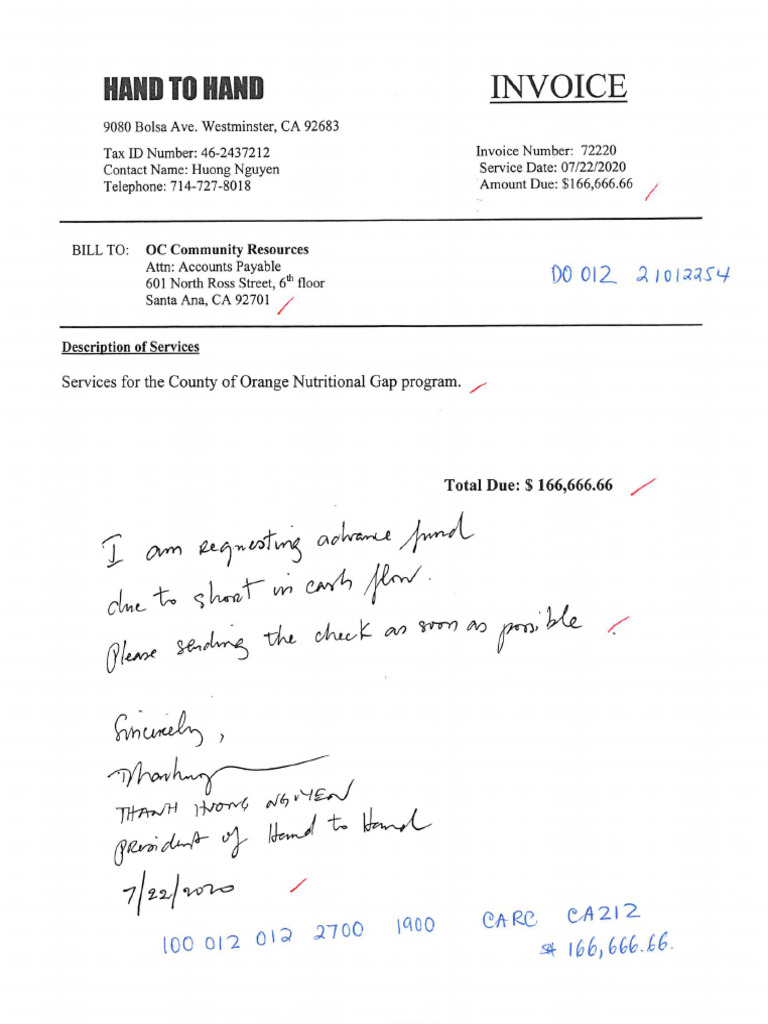 HAND TO HAND
INVOICE
9080 Bolsa Ave. Westminster, CA 92683
Tax ID Number: 46-2437212
Contact Name: Huong Nguyen
Telephone: 714-727-8018
Invoice Number: 72220
Service Date: 07/22/2020
Amount Due: $166,666.66
BILL TO: OC Community Resources
Attn: Accounts Payable
601 North Ross Street, 6th floor
Santa Ana, CA 92701
DO 012 21012254
Description of Services
Services for the County of Orange Nutritional Gap program.
Total Due: $ 166,666.66
I am requesting advance fund
due to short in cash flow.
Please sending the check as soon as possible.
Sincerely,
THANH HUONG NGUYEN
President of Hand to Hand
7/22/2020
100 012 012 2700 1900 CARC CA212
$ 166,666.66.